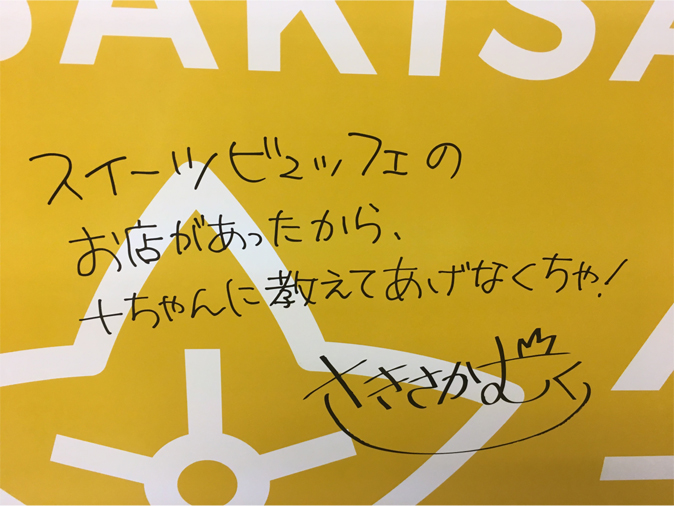 SAKISA
スイーツビュッフェの
お店があったから、
十ちゃんに教えてあげなくちゃ!
さきさかむく